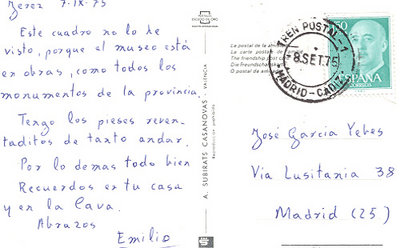 Jerez 7-IX-75
Este cuadro no lo he
visto, porque el museo está
en obras, como todos los
monumentos de la provincia.
Tengo los pieses reven-
taditos de tanto andar.
Por lo demas todo bien
Recuerdos en tu casa
y en la Cava.
Abrazos
Emilio
A. SUBIRATS CASANOVAS - VALENCIA
Reproducción prohibida
La postal de la
La carte postale de
The friendship post
Die Freundschafts
O postal da
TREN POSTAL-1
8 SET.75
MADRID-CADIZ
ESPAÑA
CORREOS
José Garcia Yebes
Via Lusitania 38
Madrid (25)